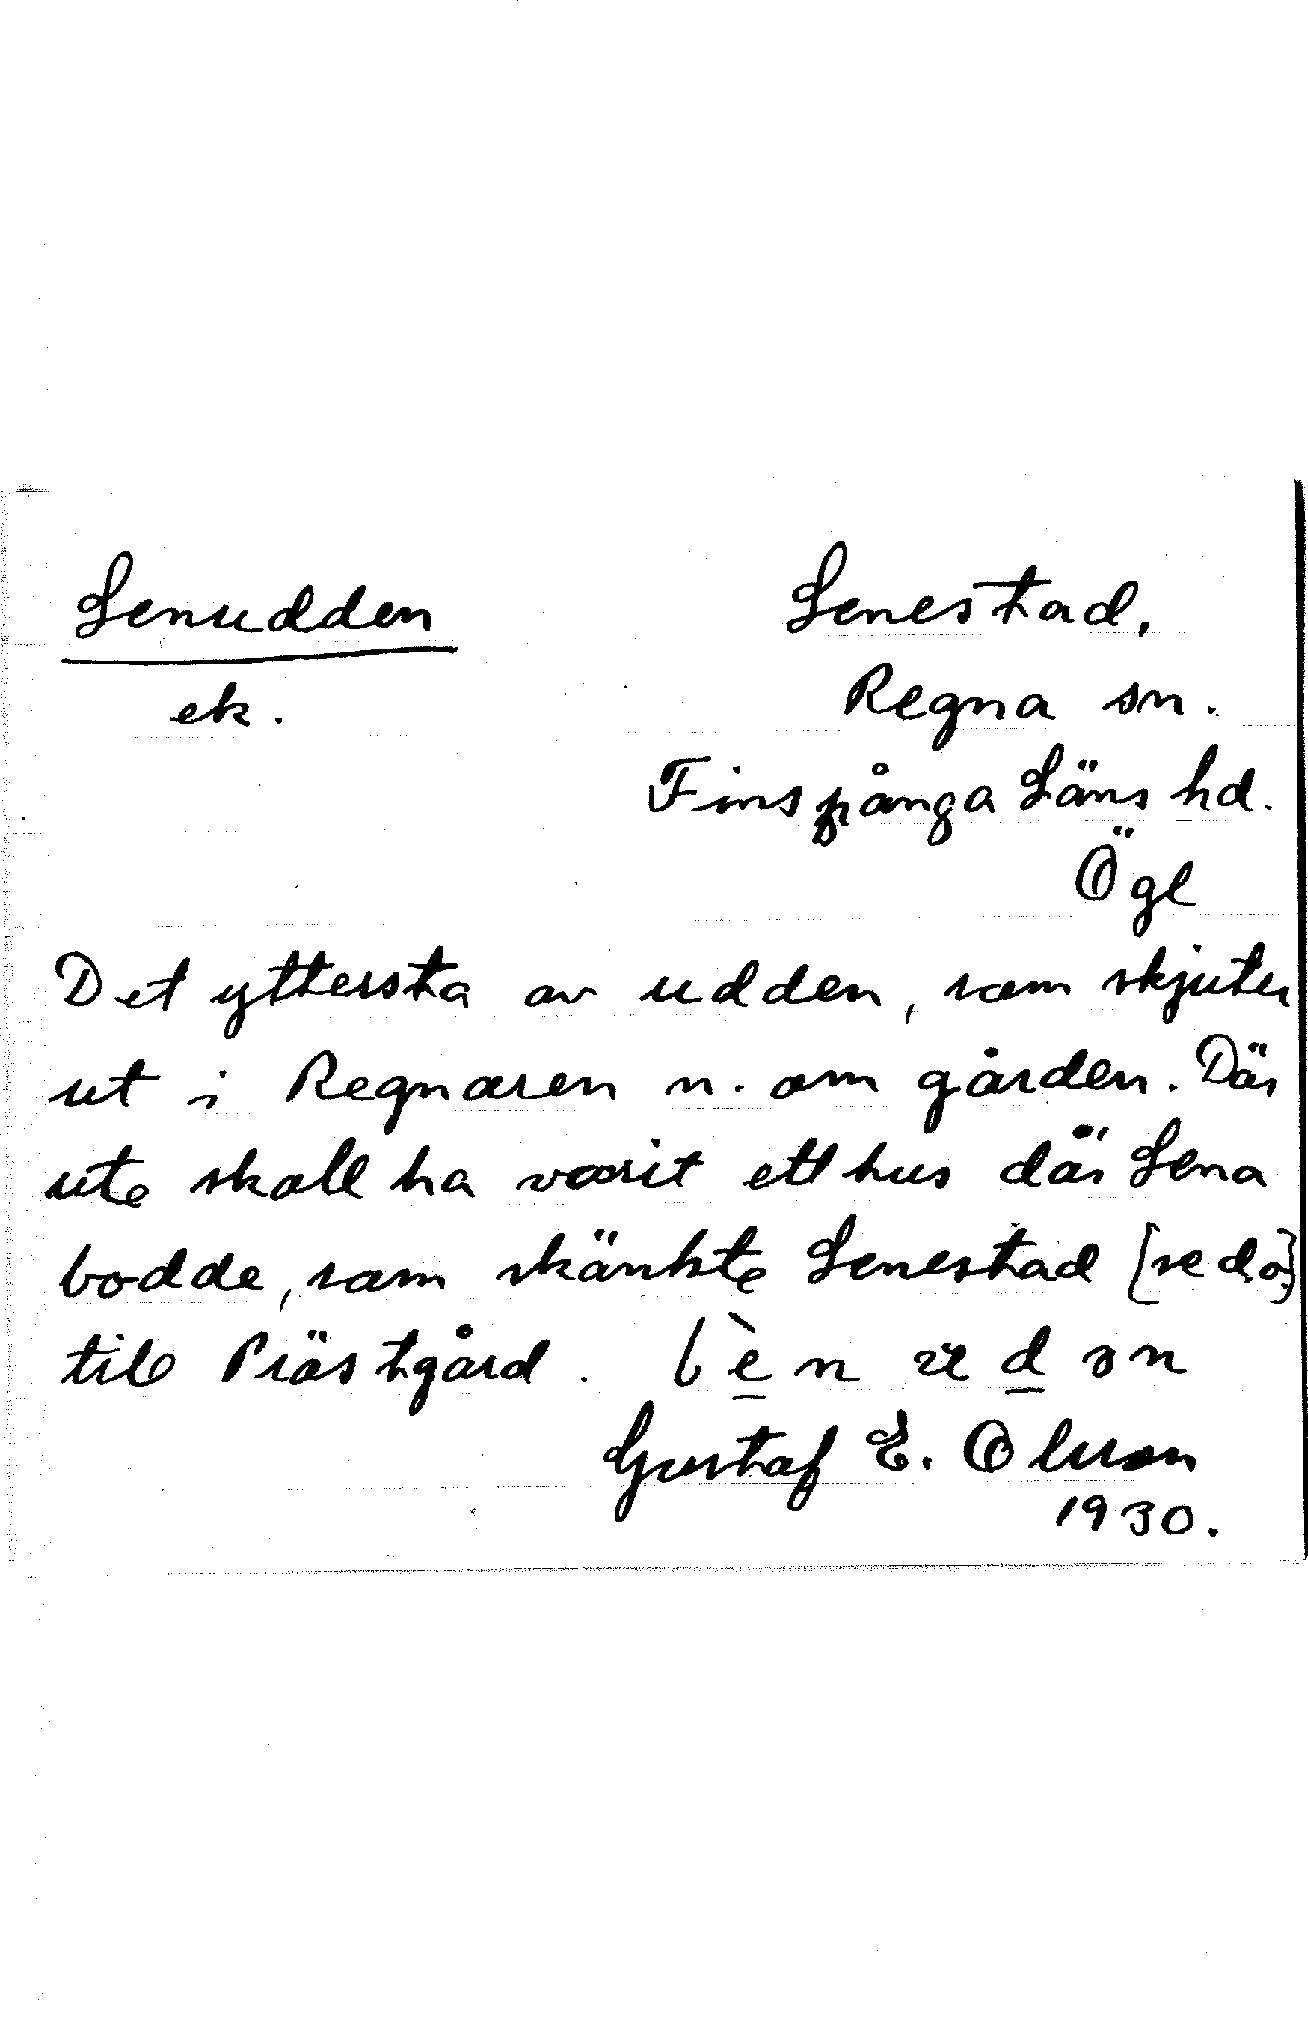 Lenudden
ek.
Lenestad,
Regna sn.
Finspånga Läns hd.
Ögl
Det yttersta av udden, som skjuter
ut i Regnaren n. om gården. Där
ute skall ha varit ett hus där Lena
bodde, som skänkte Lenestad [se d.o.]
till Prästgård.
Gustaf E. Olsson
1930.